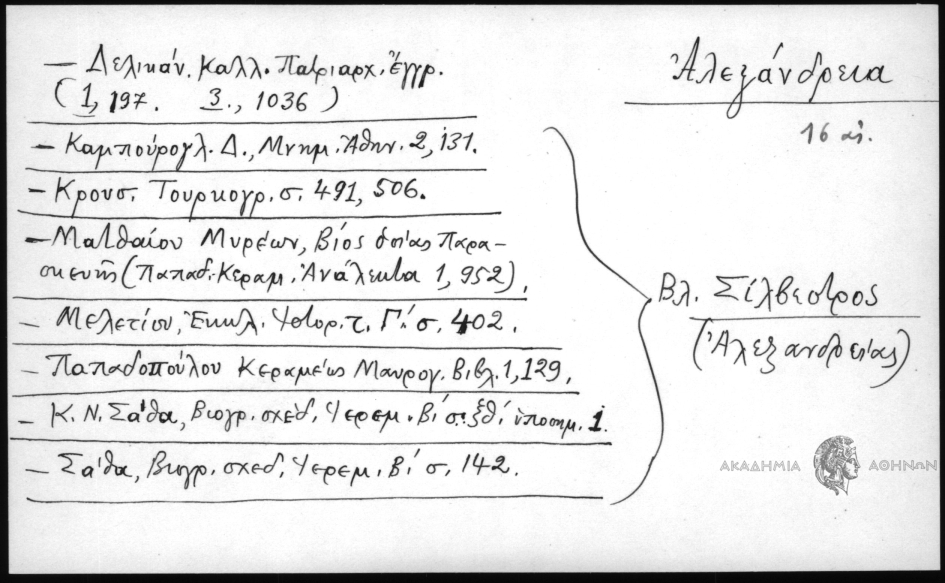 — Δελικάν. Καλλ. Πατριαρχ. Ἔγγρ.
(1, 197. 3., 1036)
— Καμπούρογλ. Δ., Μνημ. Ἀθην. 2, 131.
— Κρουσ. Τουρκογρ. σ. 491, 506.
— Ματθαίου Μυρέων, Βίος ὁσίας Παρα-
σκευῆς (Παπαδ. Κεραμ. Ἀνάλεκτα 1, 952).
— Μελετίου, Ἐκκλ. Ἱστορ. τ. Γ΄ σ. 402.
— Παπαδοπούλου Κεραμέως Μαυρογ. Βιβλ. 1, 129.
— Κ. Ν. Σάθα, Βιογρ. σχέδ. Ἱερεμ. Β΄ σ. ξθ΄ ὑποσημ. 1.
— Σάθα, Βιογρ. σχεδ. Ἱερεμ. Β΄ σ. 142.
Ἀλεξάνδρεια
16 αἰ.
Βλ. Σίλβεστρος
(Ἀλεξανδρείας)
ΑΚΑΔΗΜΙΑ ΑΘΗΝΩΝ